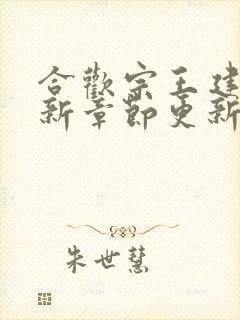 合歡宗王建
新章節更新
朱世慧